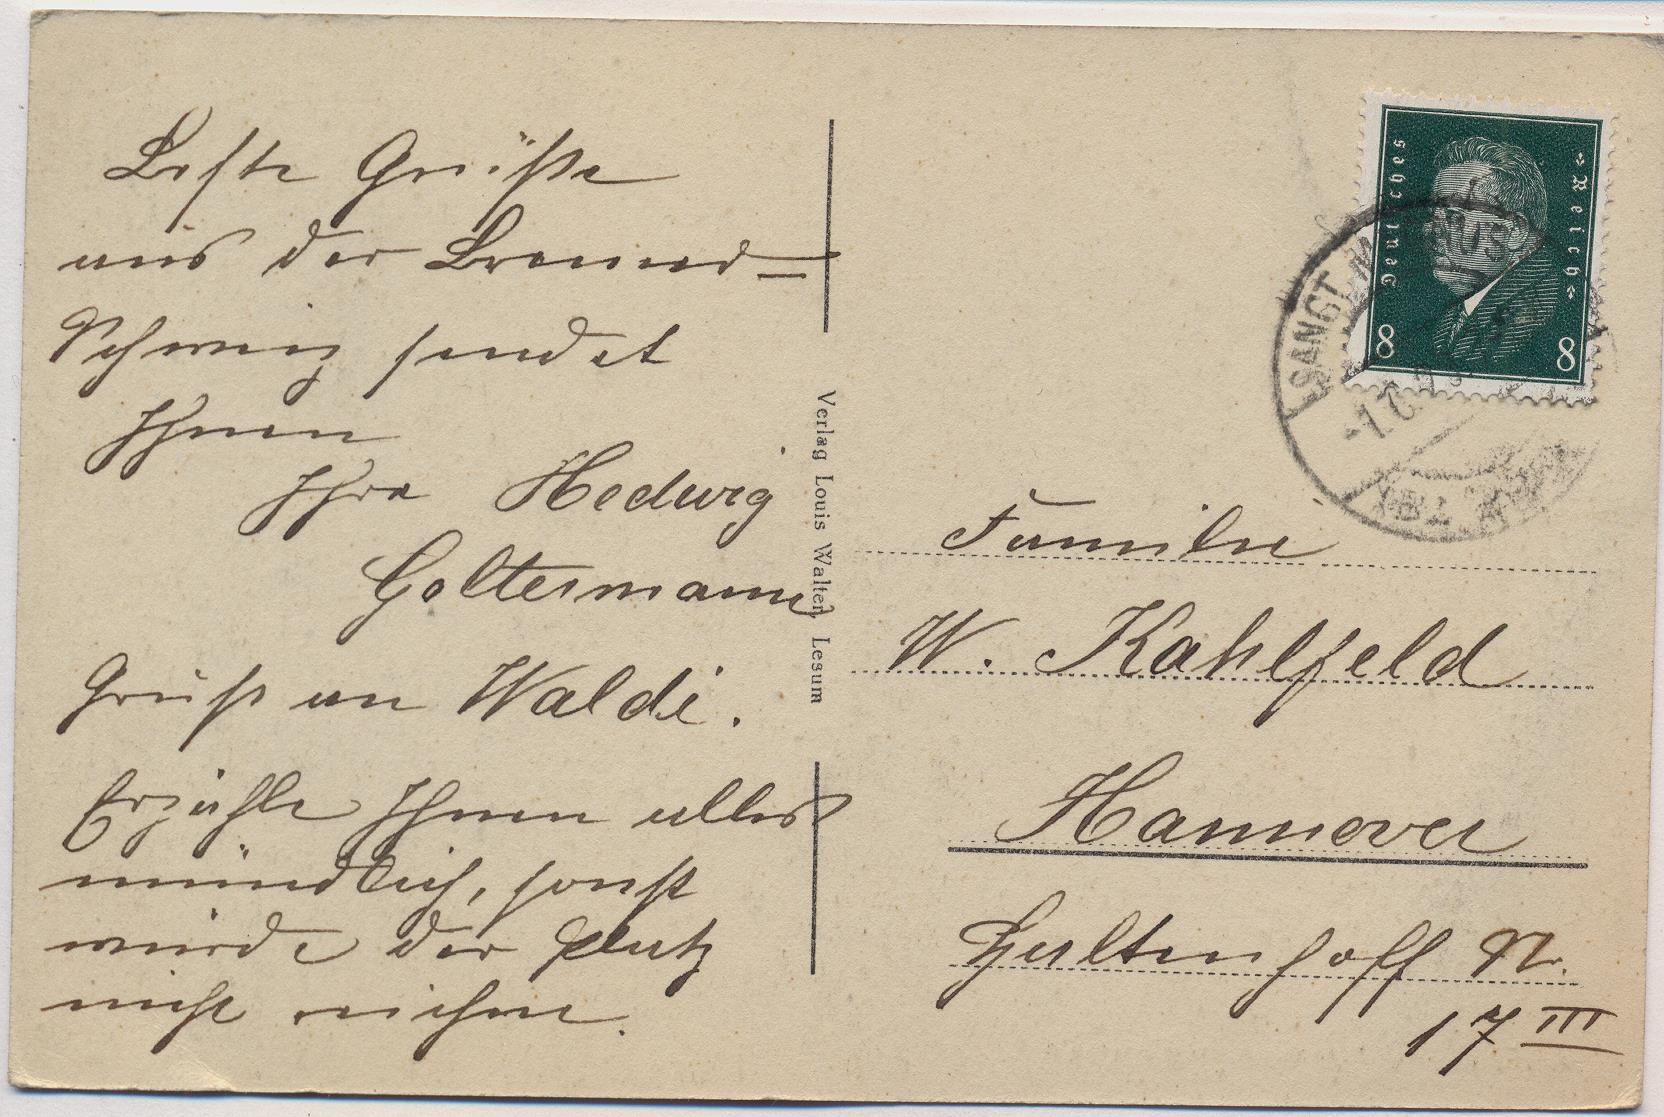 Beste Grüße
aus der Bremer-
Schweiz sendet
Ihnen
Ihre Hedwig
Goltermann
Gruß an Waldi.
Erzähle Ihnen alles
mündlich, sonst
würde der Platz
nicht reichen.
Verlag Louis Walter, Lesum
Deutsches
Reich
8 8
SANGT
Familie
W. Kahlfeld
Hannover
Nr.
17 III